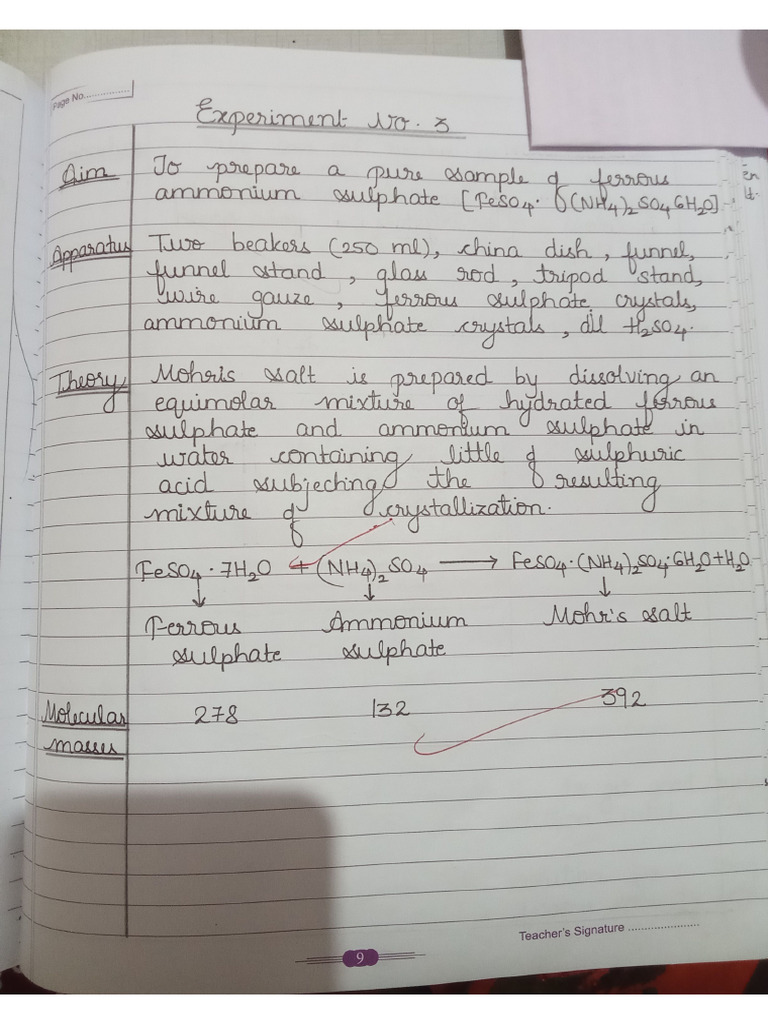 Page No.............
Experiment No. 3
Aim To prepare a pure sample of ferrous
ammonium sulphate [FeSO4. (NH4)2SO4 6H2O]
Apparatus Two beakers (250 ml), china dish, funnel,
funnel stand, glass rod, tripod stand,
wire gauze, ferrous sulphate crystals,
ammonium sulphate crystals, dil H2SO4.
Theory Mohris salt is prepared by dissolving an
equimolar mixture of hydrated ferrous
sulphate and ammonium sulphate in
water containing little of sulphuric
acid subjeching the resulting
mixture of crystallization.
FeSO4 · 7H2O + (NH4)2 SO4 → FeSO4·(NH4)2SO4·6H2O+H2O
↓ ↓ ↓
Ferrous Ammonium Mohr's salt
sulphate sulphate
Molecular 278 132 392
masses
Teacher's Signature ......................
9